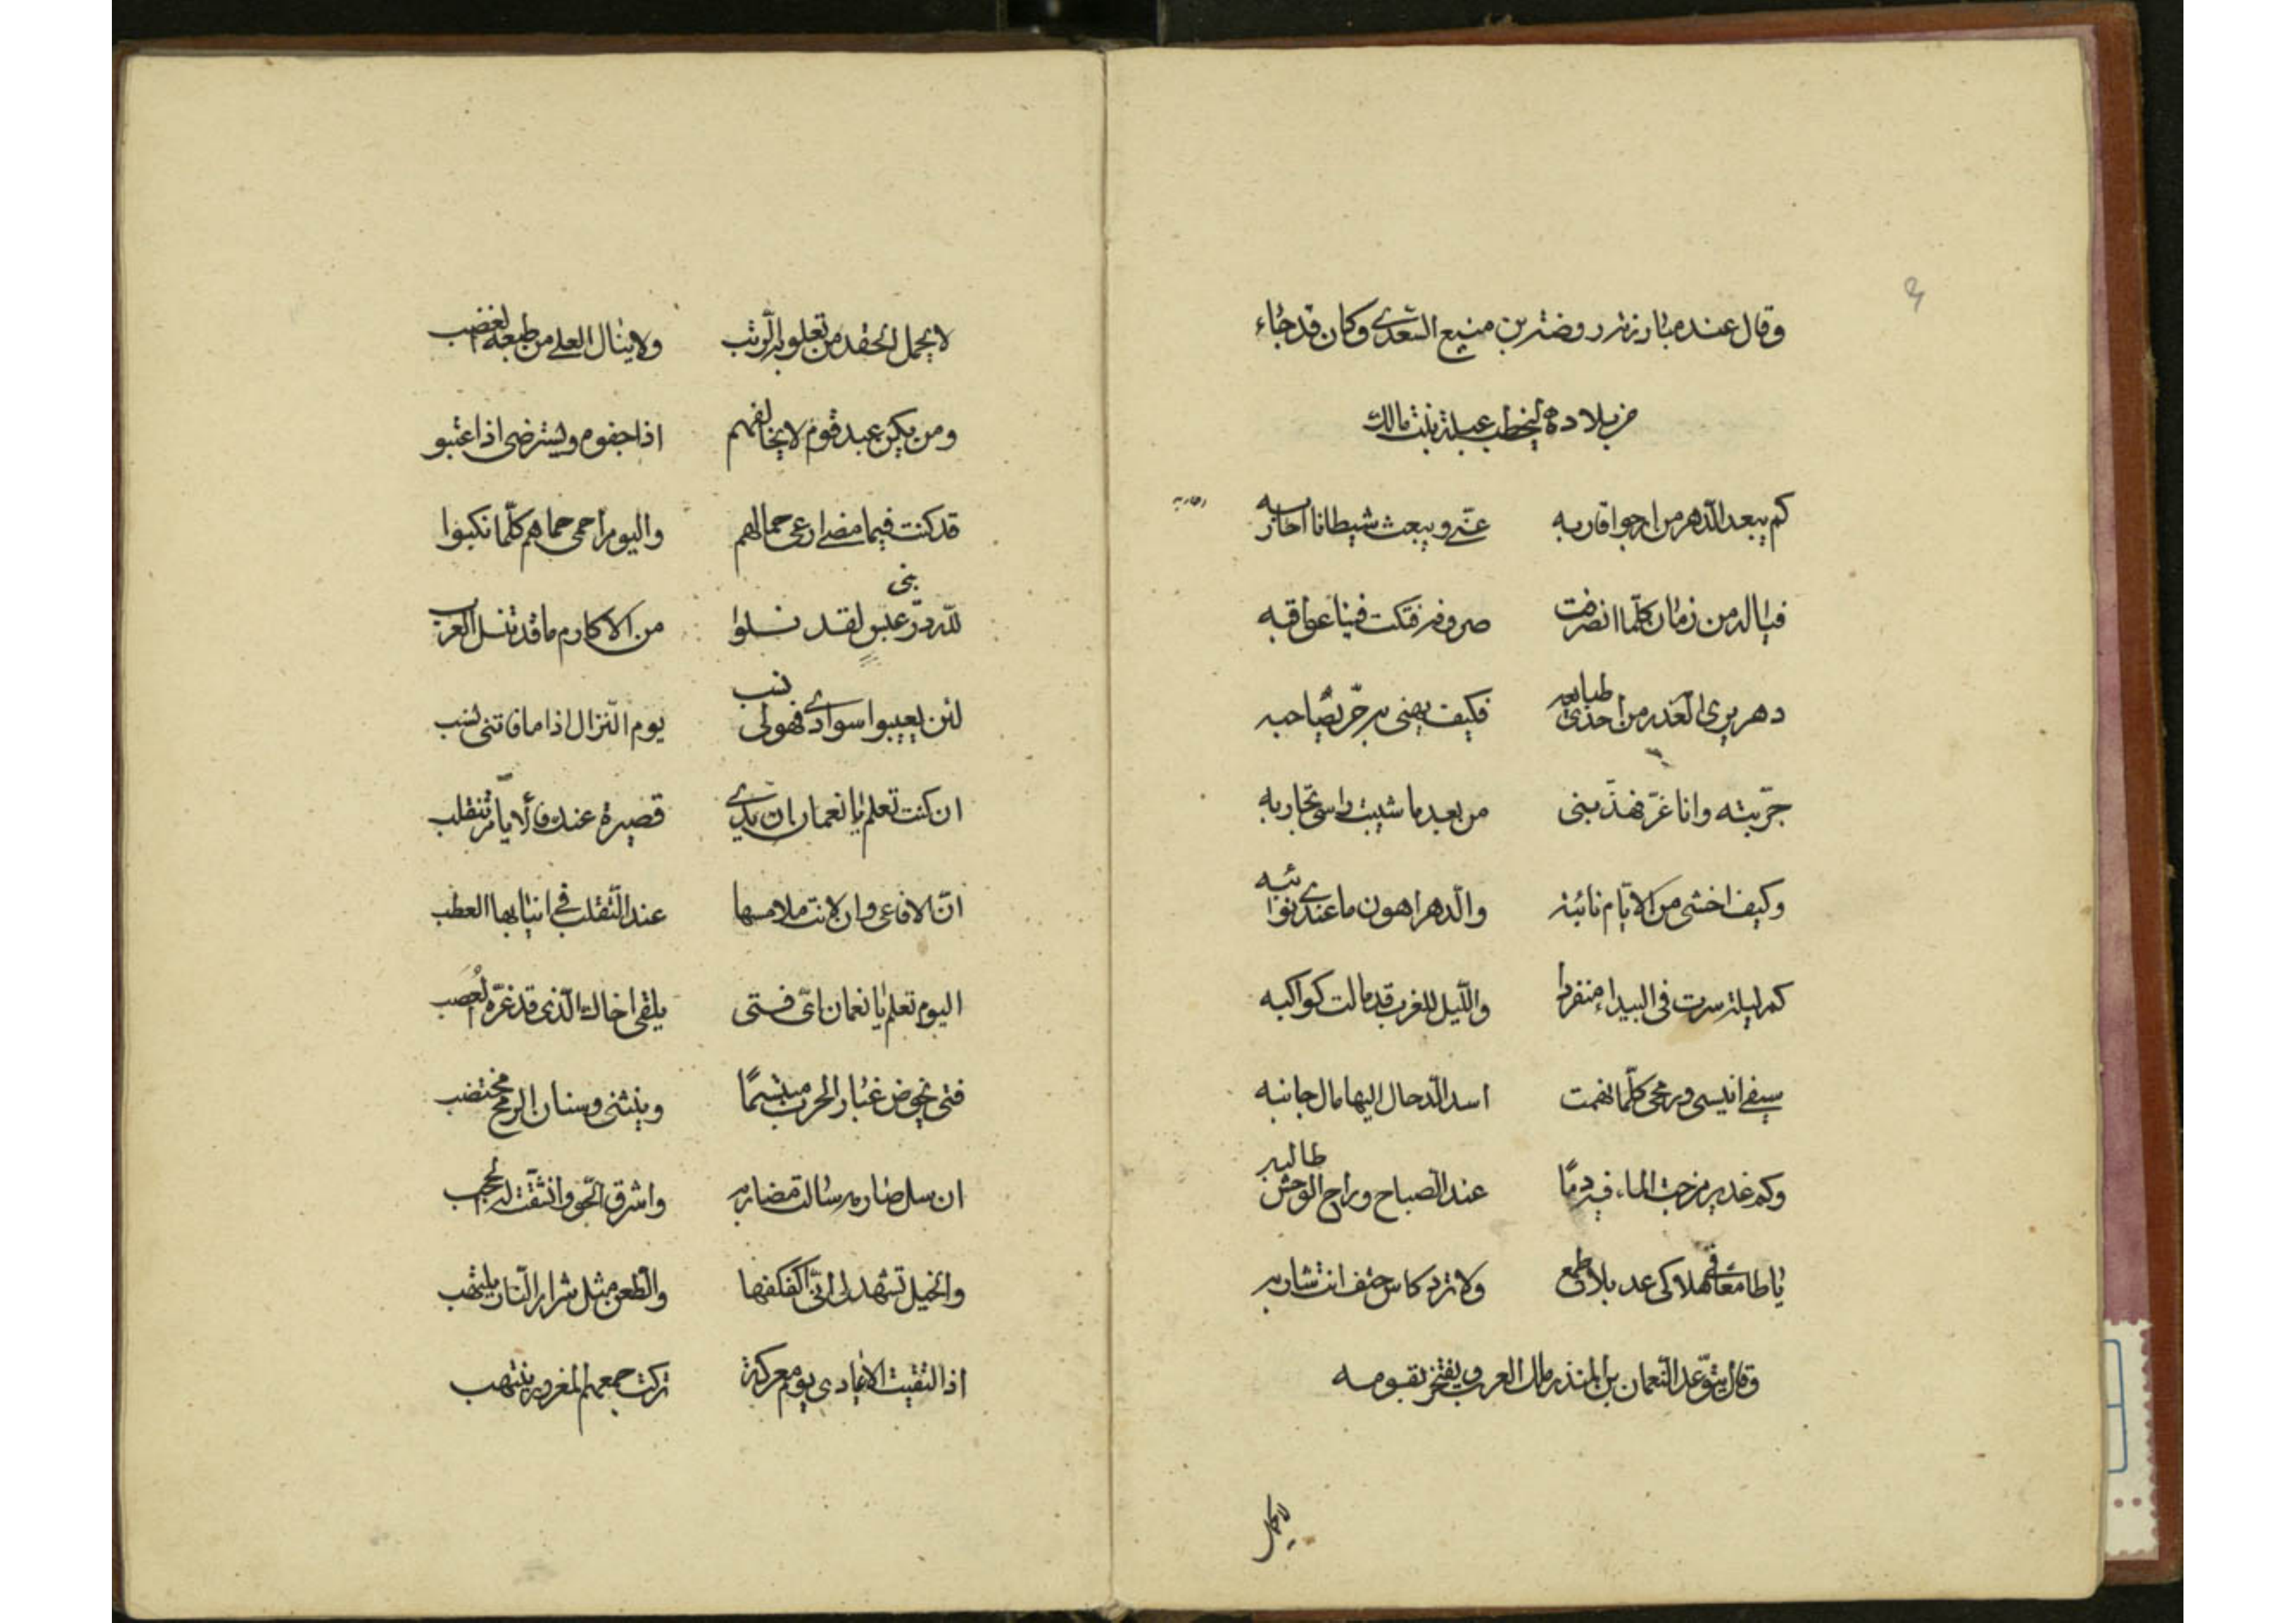 وقال عند مبارزته روضة بن منيع السعدى وكان قد جاء
من بلاده ليخطب عبلة بنت مالك
كم يبعد الدهر من ارجو اقاربه عنى ويبعث شيطانا احاربه
فياله من زمان كلما انصرفت صروفه فتكت فينا عواقبه
دهر يرى الغدر من احدى طبايعه فكيف يهنى به حر يصاحبه
جربته وانا غر فهذبنى من بعد ما شيبت راسى تجاربه
وكيف اخشى من الايام نائبة والدهر اهون ما عندى نوائبه
كم ليلة سرت فى البيداء منفردا والليل للغرب قد مالت كواكبه
سيفى انيسى ورمحى كلما نهمت اسد الدحال اليها مال جانبه
وكم غدير مزجت الماء فيه دمًا عند الصباح وراح الوحش طالبه
يا طامعا فى هلاكى عد بلا طمع ولا ترد كاس حتف انت شاربه
وقال يتوعد النعمان بن المنذر ملك العرب ويفتخر بقومه
لا يحمل
لا يحمل الحقد من تعلو به الرتب ولا ينال العلى من طبعه الغضب
ومن يكن عبد قوم لا يخالفهم اذا جفوه ويسترضى اذا عتبو
قد كنت فيما مضى ارعى جمالهم واليوم احمى حماهم كلما نكبوا
لله در بنى عبس لقد نسلوا من الاكارم ما قد تنسل العرب
لئن يعيبوا سوادى فهو لى نسب يوم النزال اذا ما فاتنى نسب
ان كنت تعلم يا نعمان ان يدى قصيرة عنك فالايام تنقلب
ان الافاعى وان لانت ملامسها عند التقلب فى انيابها العطب
اليوم تعلم يا نعمان اى فتى يلقى اخاك الذى قد غره العُصَب
فتى يخوض غبار الحرب مبتسمًا وينثنى وسنان الرمح مختضب
ان سل صارمه سالت مضاربه واشرق الجو وانشقت له الحجب
والخيل تشهد لى انى اكفكفها والطعن مثل شرار النار يلتهب
اذا التقيت الاعادى يوم معركة تركت جمعهم المغرور ينتهب